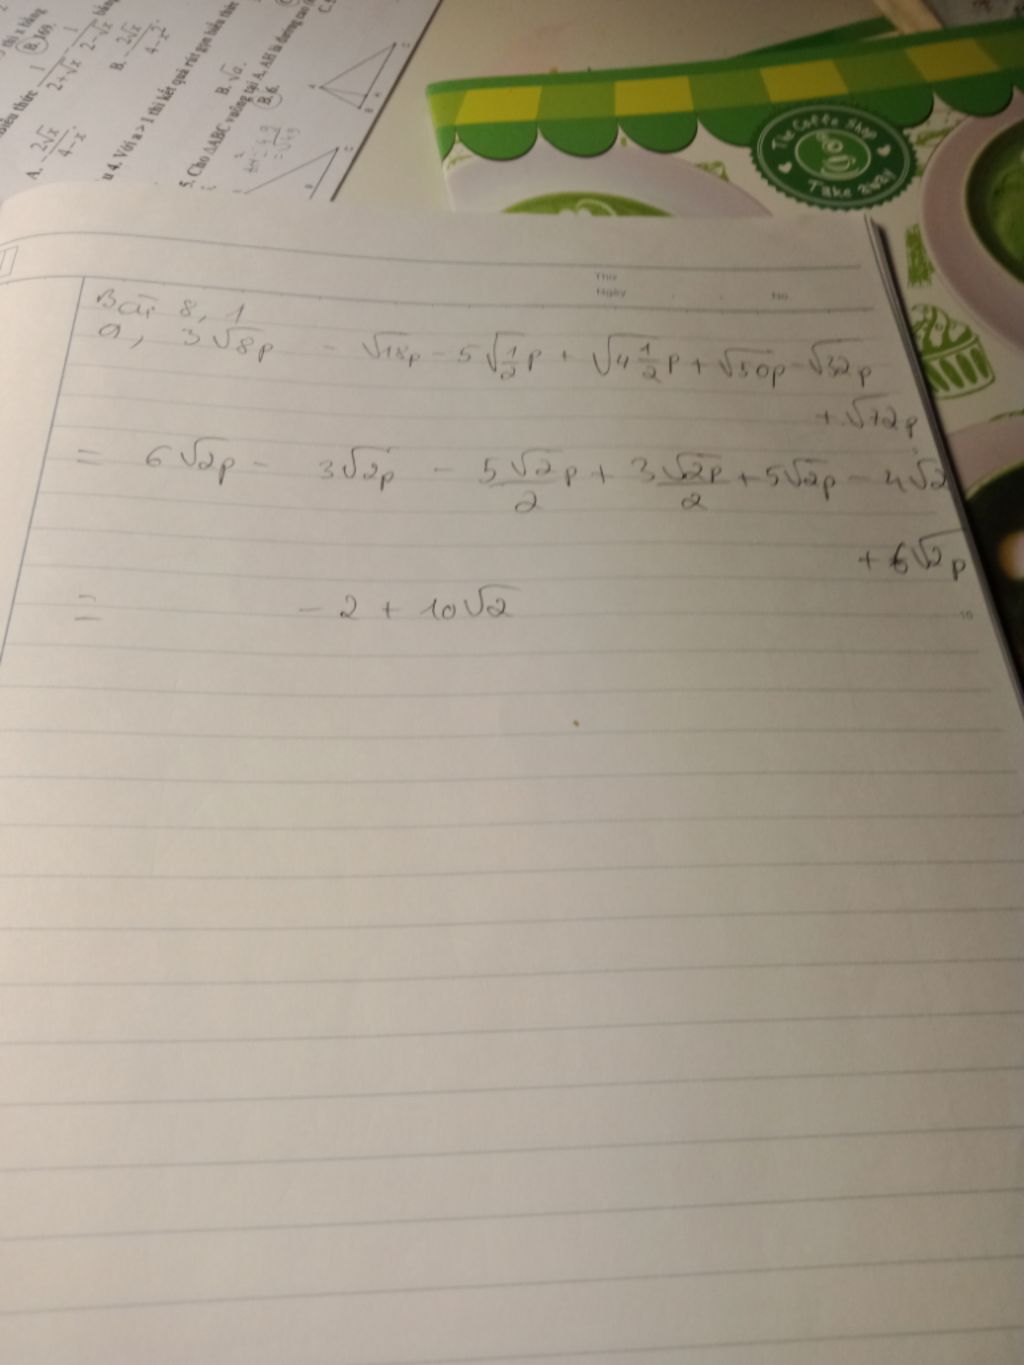 thì x bằng
B. 169.
biểu thức 1/(2+√x) - 1/(2-√x) bằng
A. -2√x/(4-x).
B. -2√x/(4-x²).
u 4. Với a > 1 thì kết quả rút gọn biểu thức
B. √a.
5. Cho ΔABC vuông tại A, AH là đường cao
B. 6.
The Coffee Shop
Take away
Thứ
Ngày No.
Bài 8, 1
a, 3√8p - √18p - 5√(1/2)p + √(4 1/2)p + √50p - √32p
+ √72p
= 6√2p - 3√2p - 5√2/2 p + 3√2p/2 + 5√2p - 4√2
+ 6√2p
= - 2 + 10√2